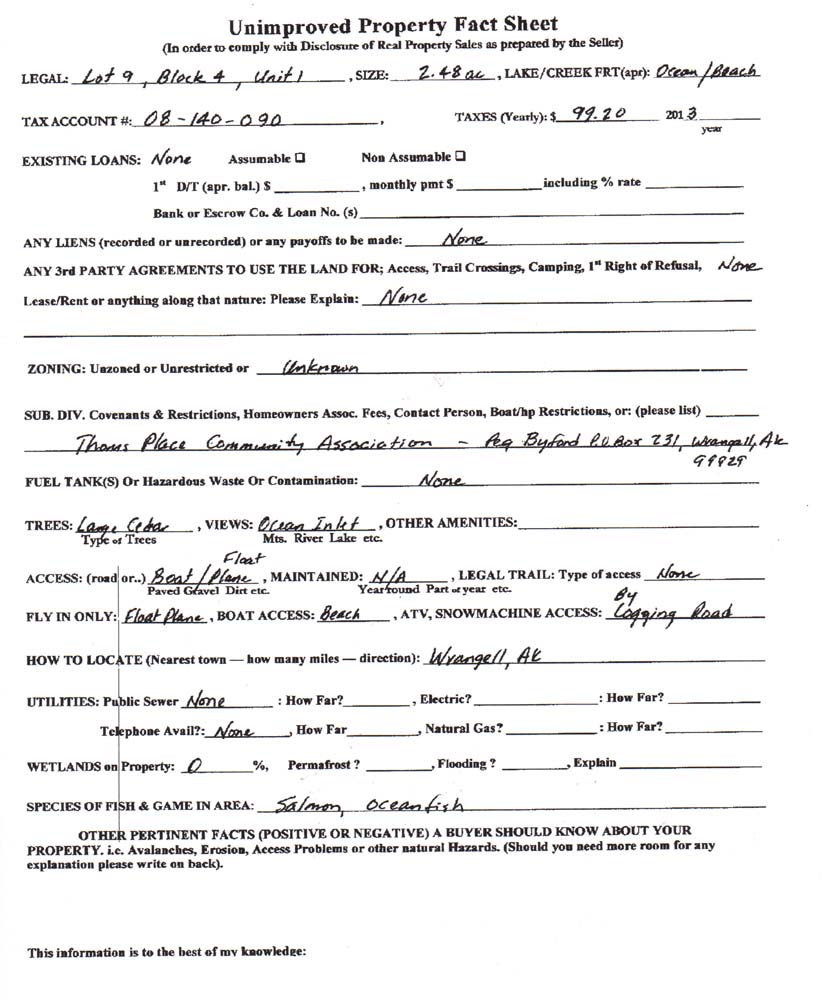 Unimproved Property Fact Sheet
(In order to comply with Disclosure of Real Property Sales as prepared by the Seller)
LEGAL: Lot 9, Block 4, Unit 1, SIZE: 2.48 ac, LAKE/CREEK FRT(apr): Ocean/Beach
TAX ACCOUNT #: 08-140-090, TAXES (Yearly): $ 99.20 2013
year
EXISTING LOANS: None Assumable ☐ Non Assumable ☐
1st D/T (apr. bal.) $ ____________, monthly pmt $ ____________ including % rate ____________
Bank or Escrow Co. & Loan No. (s) ____________
ANY LIENS (recorded or unrecorded) or any payoffs to be made: None
ANY 3rd PARTY AGREEMENTS TO USE THE LAND FOR; Access, Trail Crossings, Camping, 1st Right of Refusal, None
Lease/Rent or anything along that nature: Please Explain: None
ZONING: Unzoned or Unrestricted or Unknown
SUB. DIV. Covenants & Restrictions, Homeowners Assoc. Fees, Contact Person, Boat/hp Restrictions, or: (please list) ________
Thoms Place Community Association - Peg Byford P.O. Box 231, Wrangell, Ak
99929
FUEL TANK(S) Or Hazardous Waste Or Contamination: None
TREES: Large Cedar, VIEWS: Ocean Inlet, OTHER AMENITIES: ____________
Type of Trees Mts. River Lake etc.
Float
ACCESS: (road or..) Boat/Plane, MAINTAINED: N/A, LEGAL TRAIL: Type of access None
Paved Gravel Dirt etc. Yearround Part of year etc.
By
FLY IN ONLY: Float Plane, BOAT ACCESS: Beach, ATV, SNOWMACHINE ACCESS: Logging Road
HOW TO LOCATE (Nearest town — how many miles — direction): Wrangell, AK
UTILITIES: Public Sewer None : How Far? ________, Electric? ____________ : How Far? ________
Telephone Avail?: None, How Far ________, Natural Gas? ____________ : How Far? ________
WETLANDS on Property: 0 %, Permafrost ? ________, Flooding ? ________, Explain ____________
SPECIES OF FISH & GAME IN AREA: Salmon, Ocean fish
OTHER PERTINENT FACTS (POSITIVE OR NEGATIVE) A BUYER SHOULD KNOW ABOUT YOUR
PROPERTY. i.e. Avalanches, Erosion, Access Problems or other natural Hazards. (Should you need more room for any
explanation please write on back).
This information is to the best of my knowledge: